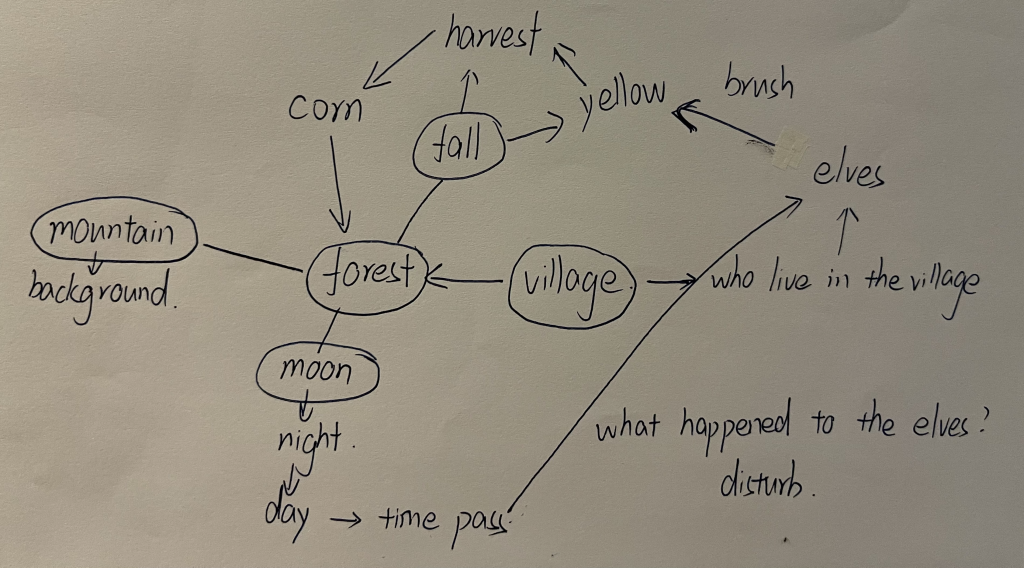 harvest
corn
fall
yellow
brush
elves
mountain
background.
forest
village
who live in the village
moon
night.
day → time pass.
what happened to the elves?
disturb.